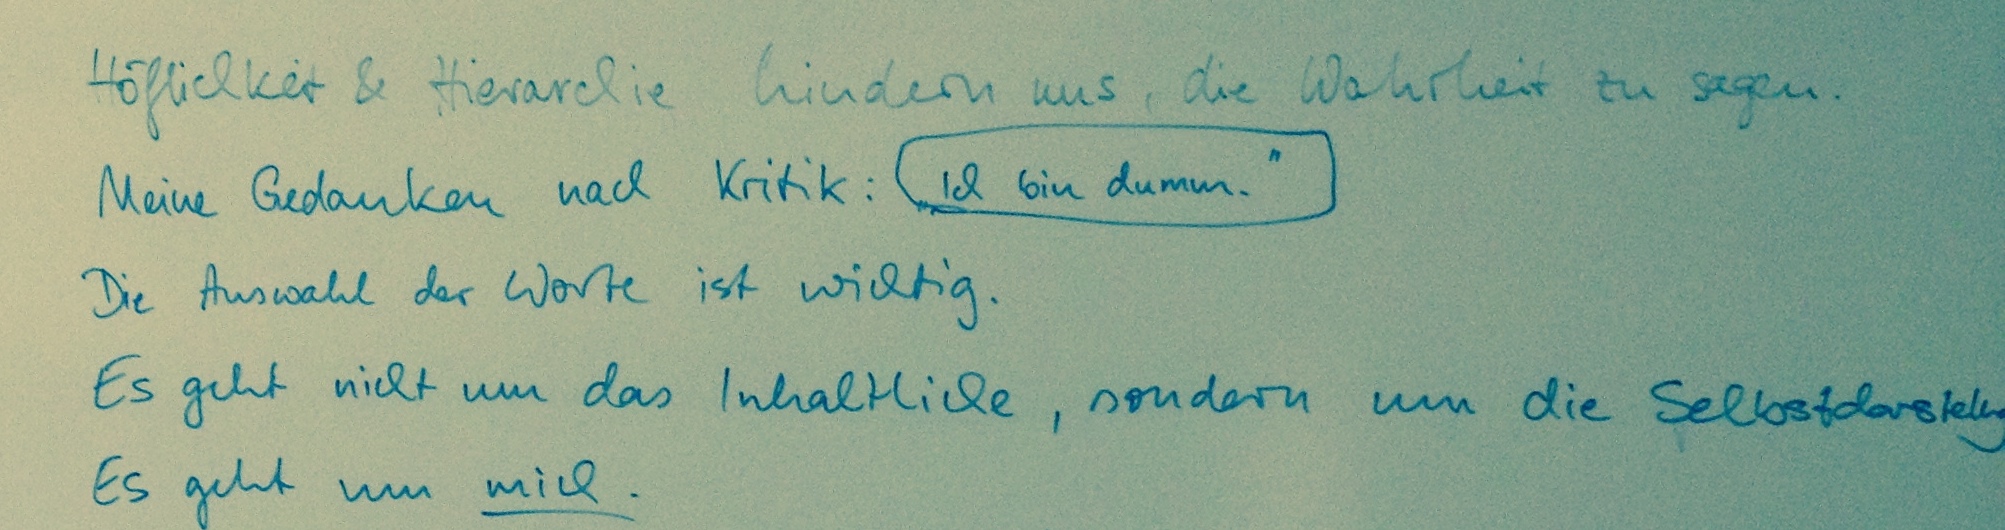 Höflichkeit & Hierarchie hindern uns, die Wahrheit zu sagen.
Meine Gedanken nach Kritik: „Ich bin dumm."
Die Auswahl der Worte ist wichtig.
Es geht nicht um das Inhaltliche, sondern um die Selbstdarstellung
Es geht um mich.